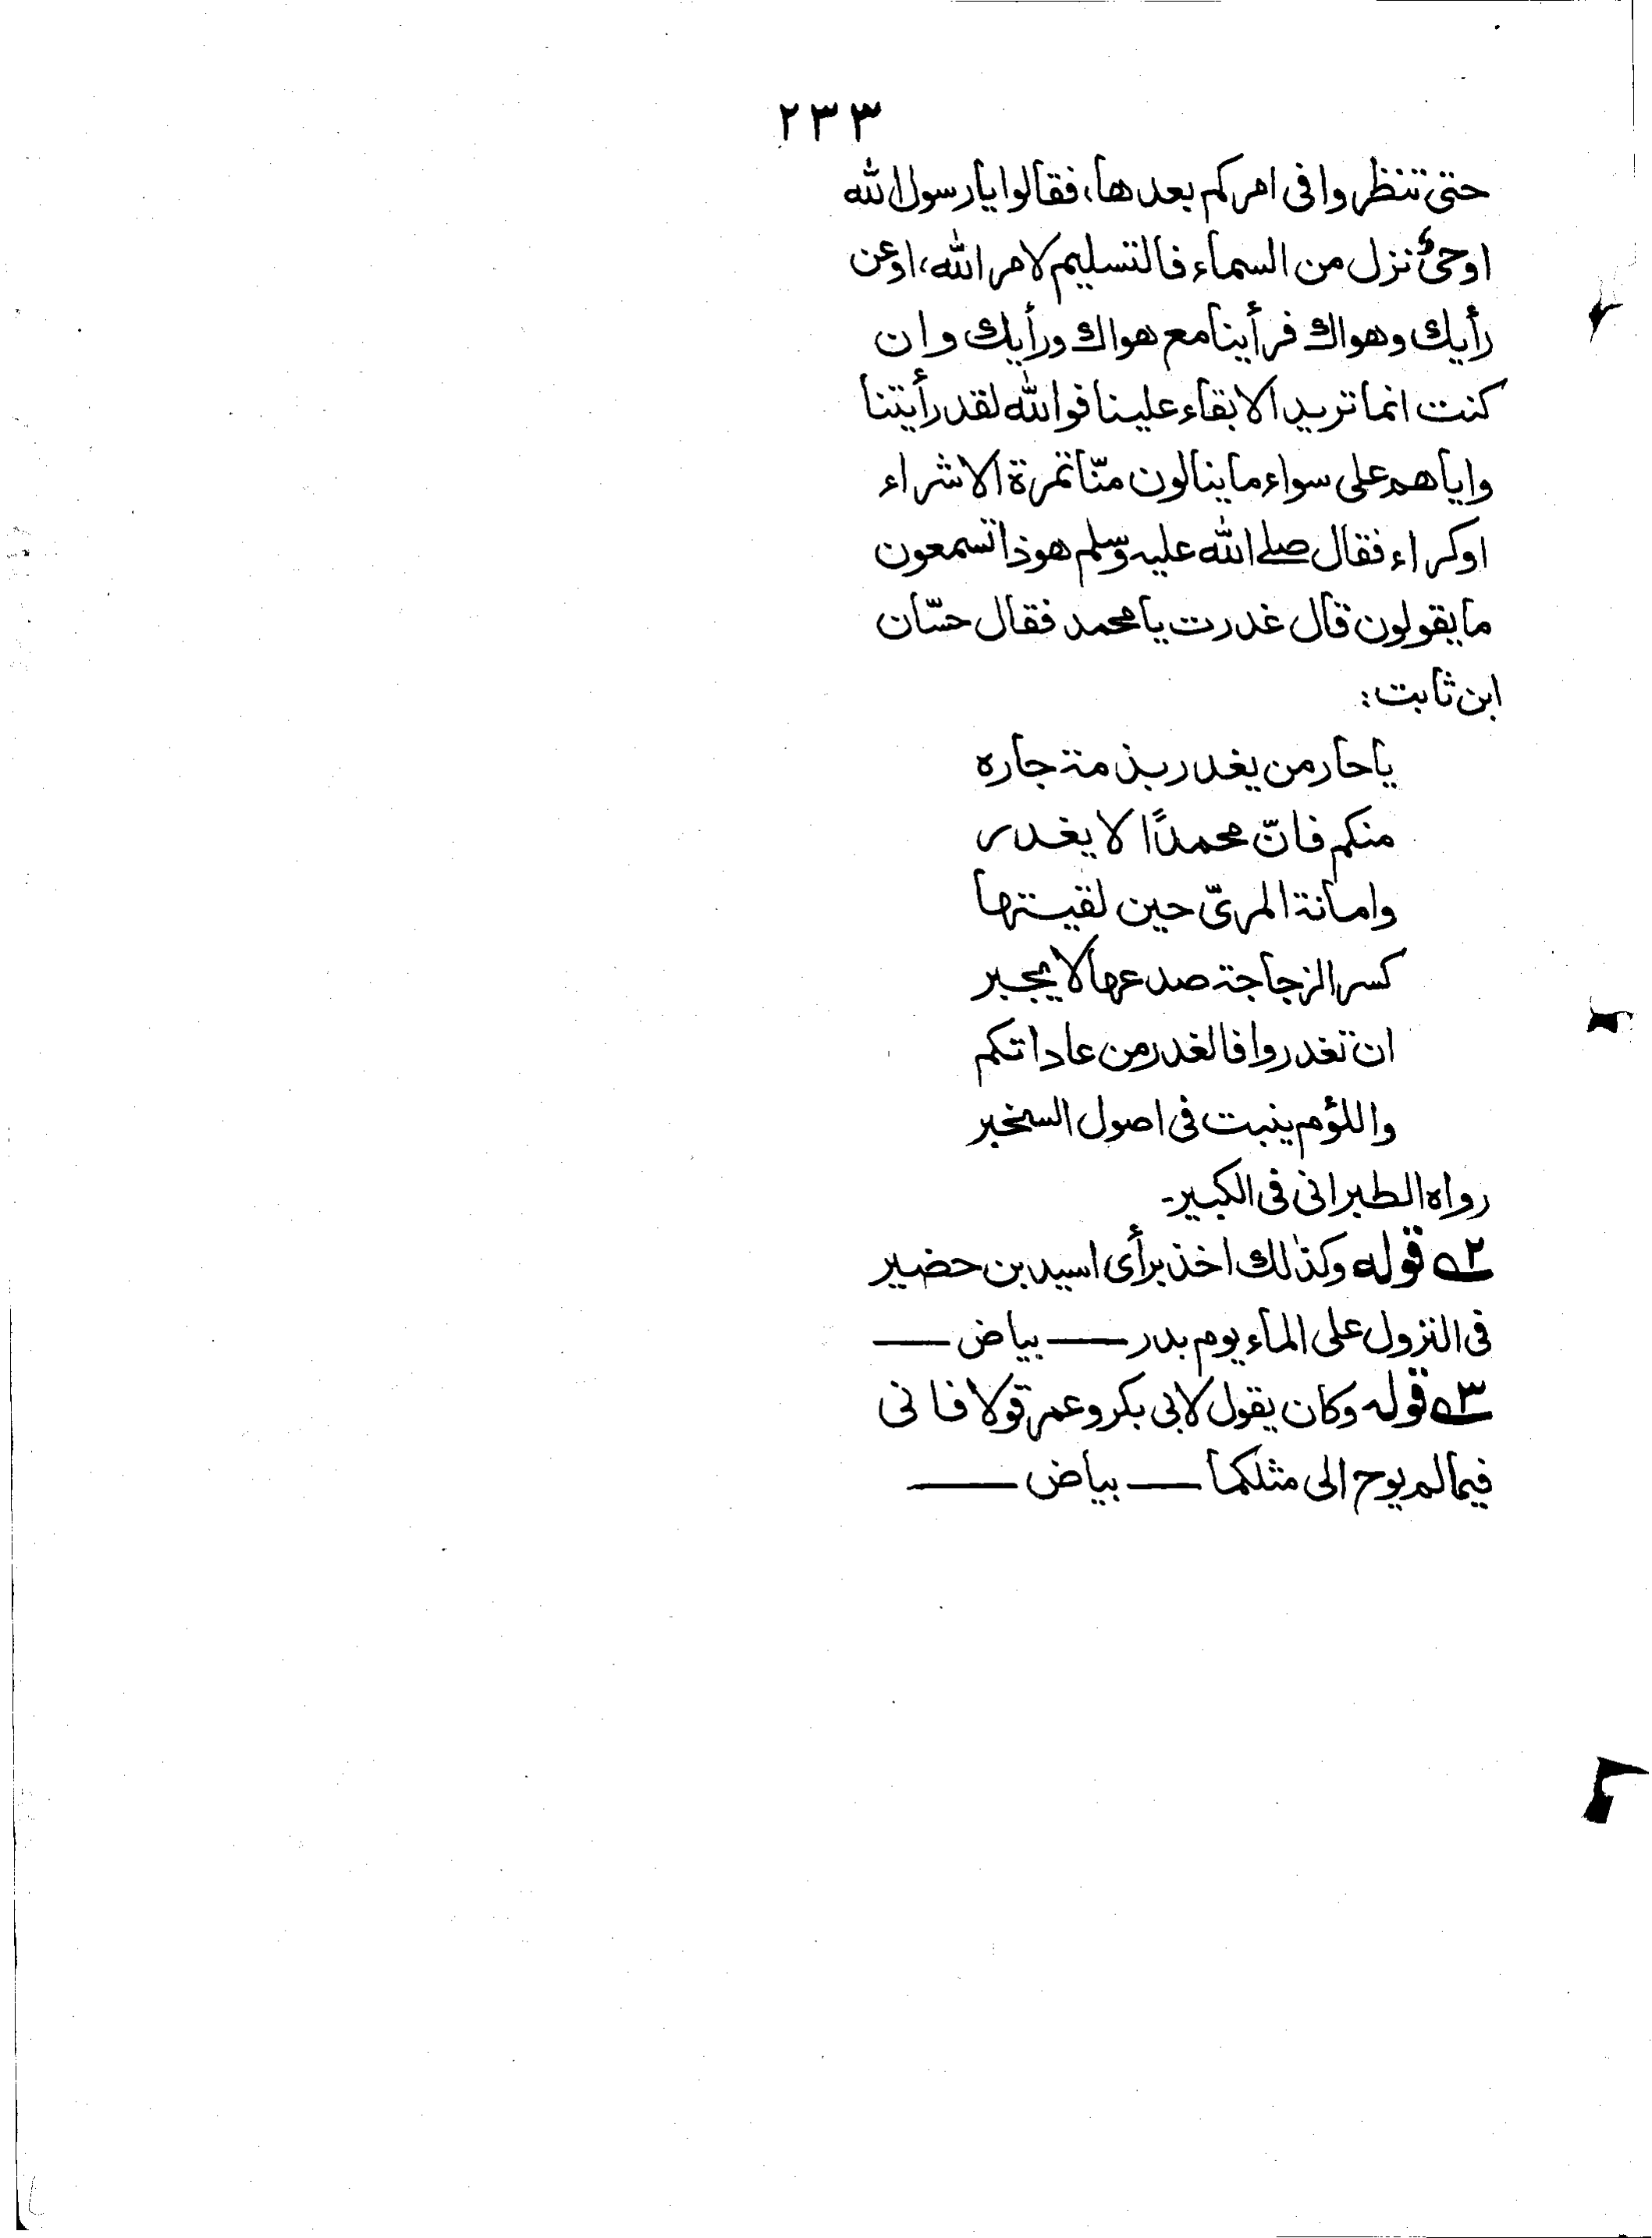 ٢٣٣
حتى تنظروا فى امركم بعدها، فقالوا يا رسول الله
اوحىٌ نزل من السماء فالتسليم لامر الله، اوعن
رأيك وهواك فرأينا مع هواك ورأيك وان
كنت انما تريد الابقاء علينا فوالله لقد رأيتنا
واياهم على سواء ما ينالون منّا تمرة الا شراء
اوكراء فقال صلى الله عليه وسلم هوذا تسمعون
ما يقولون قال غدرت يا محمد فقال حسّان
ابن ثابت:
يا حار من يغدر بذمة جاره
منكم فانّ محمدًا لا يغدر
وامانة المرىّ حين لقيتها
كسر الزجاجة صدعها لا يجبر
ان تغدروا فالغدر من عاداتكم
واللؤم ينبت فى اصول السخبر
رواه الطبرانى فى الكبير-
٢ـه قوله وكذٰلك اخذ برأى اسيد بن حضير
فى النزول على الماء يوم بدر —— بياض ——
٣ـه قوله وكان يقول لابى بكر وعمر قولا فانى
فيما لم يوح الى مثلكما —— بياض ——